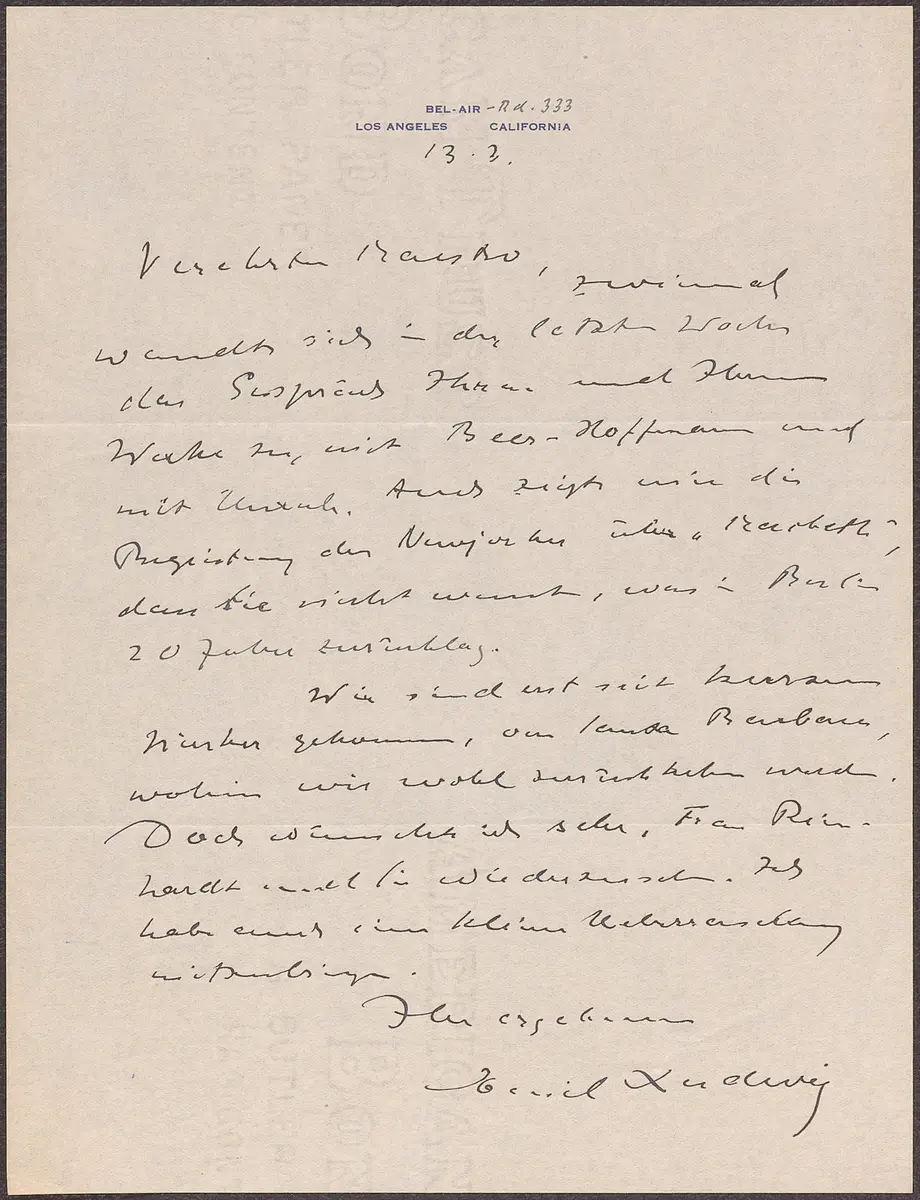 BEL-AIR -Rd. 333
LOS ANGELES CALIFORNIA
13. 3.
Verehrter Maestro,
zweimal
wandte sich in der letzten Woche
das Gespräch Ihnen und Ihrem
Werke zu, mit Beer-Hoffmann und
mit Unruh. Auch zeigte mir die
Begeistrung der Newyorker über „Macbeth",
dass sie nicht wusste, was in Berlin
20 Jahre zurücklag.
Wir sind erst seit kurzem
hierher gekommen, von Santa Barbara,
wohin wir wohl zurückkehren werden.
Doch wünschte ich sehr, Frau Rein-
hardt und Sie wiederzusehen. Ich
habe auch eine kleine Ueberraschung
mitzubringen.
Ihr ergebener
Emil Ludwig